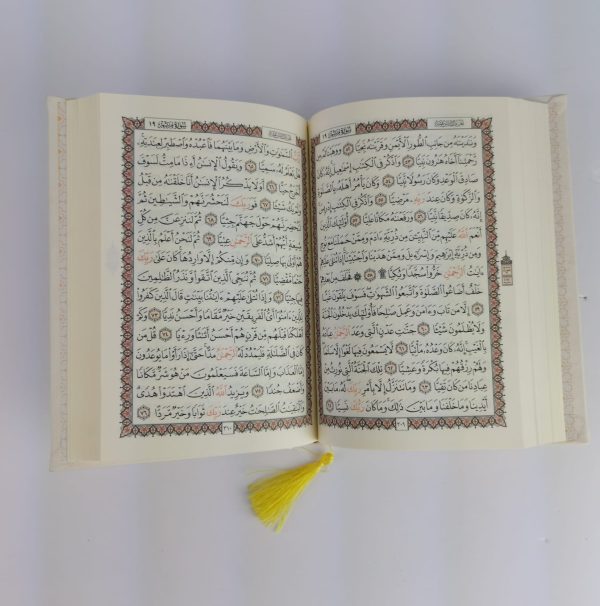 الجزء السادس عشر سورة مريم ١٩
وَنَٰدَيْنَٰهُ مِن جَانِبِ ٱلطُّورِ ٱلْأَيْمَنِ وَقَرَّبْنَٰهُ نَجِيًّا ٥٢ وَوَهَبْنَا لَهُۥ مِن
رَّحْمَتِنَآ أَخَاهُ هَٰرُونَ نَبِيًّا ٥٣ وَٱذْكُرْ فِى ٱلْكِتَٰبِ إِسْمَٰعِيلَ إِنَّهُۥ كَانَ
صَادِقَ ٱلْوَعْدِ وَكَانَ رَسُولًا نَّبِيًّا ٥٤ وَكَانَ يَأْمُرُ أَهْلَهُۥ بِٱلصَّلَوٰةِ
وَٱلزَّكَوٰةِ وَكَانَ عِندَ رَبِّهِۦ مَرْضِيًّا ٥٥ وَٱذْكُرْ فِى ٱلْكِتَٰبِ إِدْرِيسَ
إِنَّهُۥ كَانَ صِدِّيقًا نَّبِيًّا ٥٦ وَرَفَعْنَٰهُ مَكَانًا عَلِيًّا ٥٧ أُو۟لَٰٓئِكَ ٱلَّذِينَ
أَنْعَمَ ٱللَّهُ عَلَيْهِم مِّنَ ٱلنَّبِيِّـۧنَ مِن ذُرِّيَّةِ ءَادَمَ وَمِمَّنْ حَمَلْنَا مَعَ نُوحٍ
وَمِن ذُرِّيَّةِ إِبْرَٰهِيمَ وَإِسْرَٰٓءِيلَ وَمِمَّنْ هَدَيْنَا وَٱجْتَبَيْنَآ إِذَا تُتْلَىٰ عَلَيْهِمْ
ءَايَٰتُ ٱلرَّحْمَٰنِ خَرُّوا۟ سُجَّدًا وَبُكِيًّا ۩ ٥٨ ۞ فَخَلَفَ مِنۢ بَعْدِهِمْ
خَلْفٌ أَضَاعُوا۟ ٱلصَّلَوٰةَ وَٱتَّبَعُوا۟ ٱلشَّهَوَٰتِ فَسَوْفَ يَلْقَوْنَ غَيًّا
٥٩ إِلَّا مَن تَابَ وَءَامَنَ وَعَمِلَ صَٰلِحًا فَأُو۟لَٰٓئِكَ يَدْخُلُونَ ٱلْجَنَّةَ
وَلَا يُظْلَمُونَ شَيْـًٔا ٦٠ جَنَّٰتِ عَدْنٍ ٱلَّتِى وَعَدَ ٱلرَّحْمَٰنُ عِبَادَهُۥ
بِٱلْغَيْبِ إِنَّهُۥ كَانَ وَعْدُهُۥ مَأْتِيًّا ٦١ لَّا يَسْمَعُونَ فِيهَا لَغْوًا إِلَّا سَلَٰمًا
وَلَهُمْ رِزْقُهُمْ فِيهَا بُكْرَةً وَعَشِيًّا ٦٢ تِلْكَ ٱلْجَنَّةُ ٱلَّتِى نُورِثُ مِنْ
عِبَادِنَا مَن كَانَ تَقِيًّا ٦٣ وَمَا نَتَنَزَّلُ إِلَّا بِأَمْرِ رَبِّكَ لَهُۥ مَا بَيْنَ
أَيْدِينَا وَمَا خَلْفَنَا وَمَا بَيْنَ ذَٰلِكَ وَمَا كَانَ رَبُّكَ نَسِيًّا ٦٤
٣٠٩
الجزء السادس عشر سورة مريم ١٩
رَّبُّ ٱلسَّمَٰوَٰتِ وَٱلْأَرْضِ وَمَا بَيْنَهُمَا فَٱعْبُدْهُ وَٱصْطَبِرْ لِعِبَٰدَتِهِۦ
هَلْ تَعْلَمُ لَهُۥ سَمِيًّا ٦٥ وَيَقُولُ ٱلْإِنسَٰنُ أَءِذَا مَا مِتُّ لَسَوْفَ
أُخْرَجُ حَيًّا ٦٦ أَوَلَا يَذْكُرُ ٱلْإِنسَٰنُ أَنَّا خَلَقْنَٰهُ مِن قَبْلُ
وَلَمْ يَكُ شَيْـًٔا ٦٧ فَوَرَبِّكَ لَنَحْشُرَنَّهُمْ وَٱلشَّيَٰطِينَ ثُمَّ
لَنُحْضِرَنَّهُمْ حَوْلَ جَهَنَّمَ جِثِيًّا ٦٨ ثُمَّ لَنَنزِعَنَّ مِن كُلِّ
شِيعَةٍ أَيُّهُمْ أَشَدُّ عَلَى ٱلرَّحْمَٰنِ عِتِيًّا ٦٩ ثُمَّ لَنَحْنُ أَعْلَمُ بِٱلَّذِينَ
هُمْ أَوْلَىٰ بِهَا صِلِيًّا ٧٠ وَإِن مِّنكُمْ إِلَّا وَارِدُهَا كَانَ عَلَىٰ رَبِّكَ
حَتْمًا مَّقْضِيًّا ٧١ ثُمَّ نُنَجِّى ٱلَّذِينَ ٱتَّقَوا۟ وَّنَذَرُ ٱلظَّٰلِمِينَ
فِيهَا جِثِيًّا ٧٢ وَإِذَا تُتْلَىٰ عَلَيْهِمْ ءَايَٰتُنَا بَيِّنَٰتٍ قَالَ ٱلَّذِينَ كَفَرُوا۟
لِلَّذِينَ ءَامَنُوٓا۟ أَىُّ ٱلْفَرِيقَيْنِ خَيْرٌ مَّقَامًا وَأَحْسَنُ نَدِيًّا ٧٣ وَكَمْ
أَهْلَكْنَا قَبْلَهُم مِّن قَرْنٍ هُمْ أَحْسَنُ أَثَٰثًا وَرِءْيًا ٧٤ قُلْ مَن
كَانَ فِى ٱلضَّلَٰلَةِ فَلْيَمْدُدْ لَهُ ٱلرَّحْمَٰنُ مَدًّا حَتَّىٰٓ إِذَا رَأَوْا۟ مَا يُوعَدُونَ
إِمَّا ٱلْعَذَابَ وَإِمَّا ٱلسَّاعَةَ فَسَيَعْلَمُونَ مَنْ هُوَ شَرٌّ مَّكَانًا
وَأَضْعَفُ جُندًا ٧٥ وَيَزِيدُ ٱللَّهُ ٱلَّذِينَ ٱهْتَدَوْا۟ هُدًى
وَٱلْبَٰقِيَٰتُ ٱلصَّٰلِحَٰتُ خَيْرٌ عِندَ رَبِّكَ ثَوَابًا وَخَيْرٌ مَّرَدًّا ٧٦
٣١٠